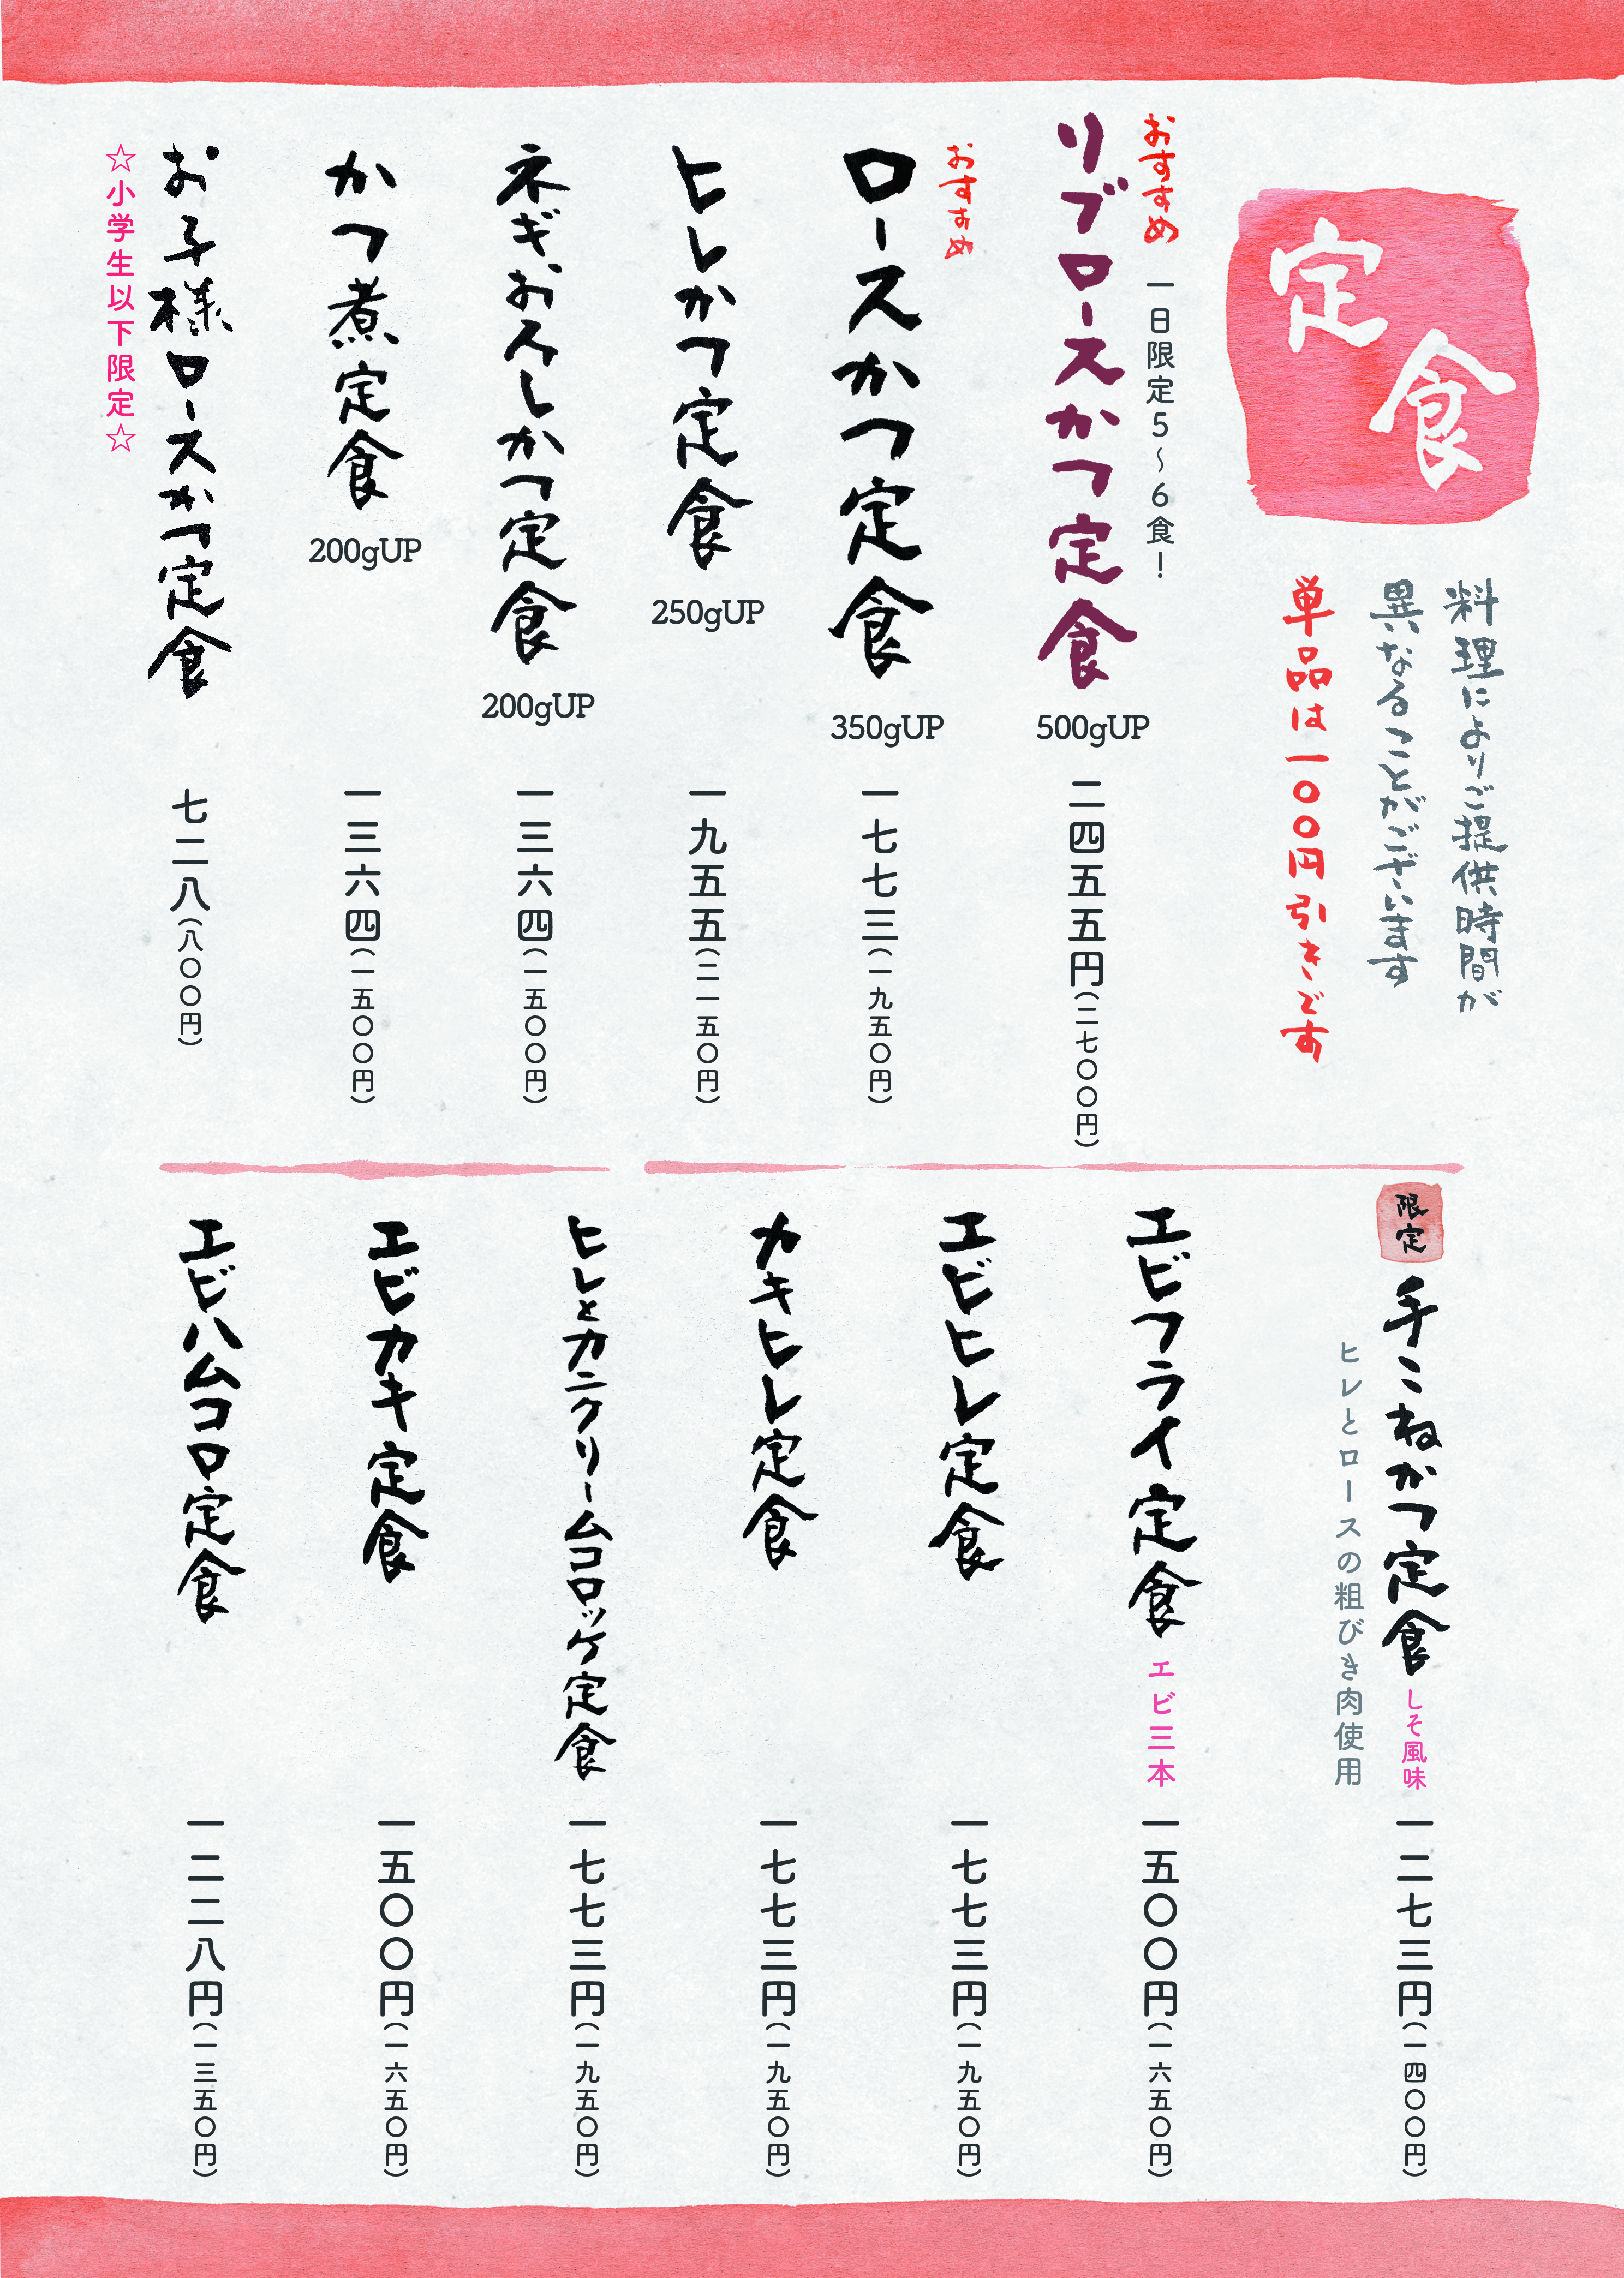 定食
料理によりご提供時間が
異なることがございます
単品は一〇〇円引きです
おすすめ
一日限定5～6食！
リブロースかつ定食
500gUP
二四五五円(二七〇〇円)
おすすめ
ロースかつ定食
350gUP
一七七三(一九五〇円)
ヒレかつ定食
250gUP
一九五五(二一五〇円)
ネギおろしかつ定食
200gUP
一三六四(一五〇〇円)
かつ煮定食
200gUP
一三六四(一五〇〇円)
お子様ロースかつ定食
七二八(八〇〇円)
☆小学生以下限定☆
限定
手こねかつ定食
しそ風味
一二七三円(一四〇〇円)
ヒレとロースの粗びき肉使用
エビフライ定食
エビ三本
一五〇〇円(一六五〇円)
エビヒレ定食
一七七三円(一九五〇円)
カキヒレ定食
一七七三円(一九五〇円)
ヒレとカニクリームコロッケ定食
一七七三円(一九五〇円)
エビカキ定食
一五〇〇円(一六五〇円)
エビハムコロ定食
一二二八円(一三五〇円)